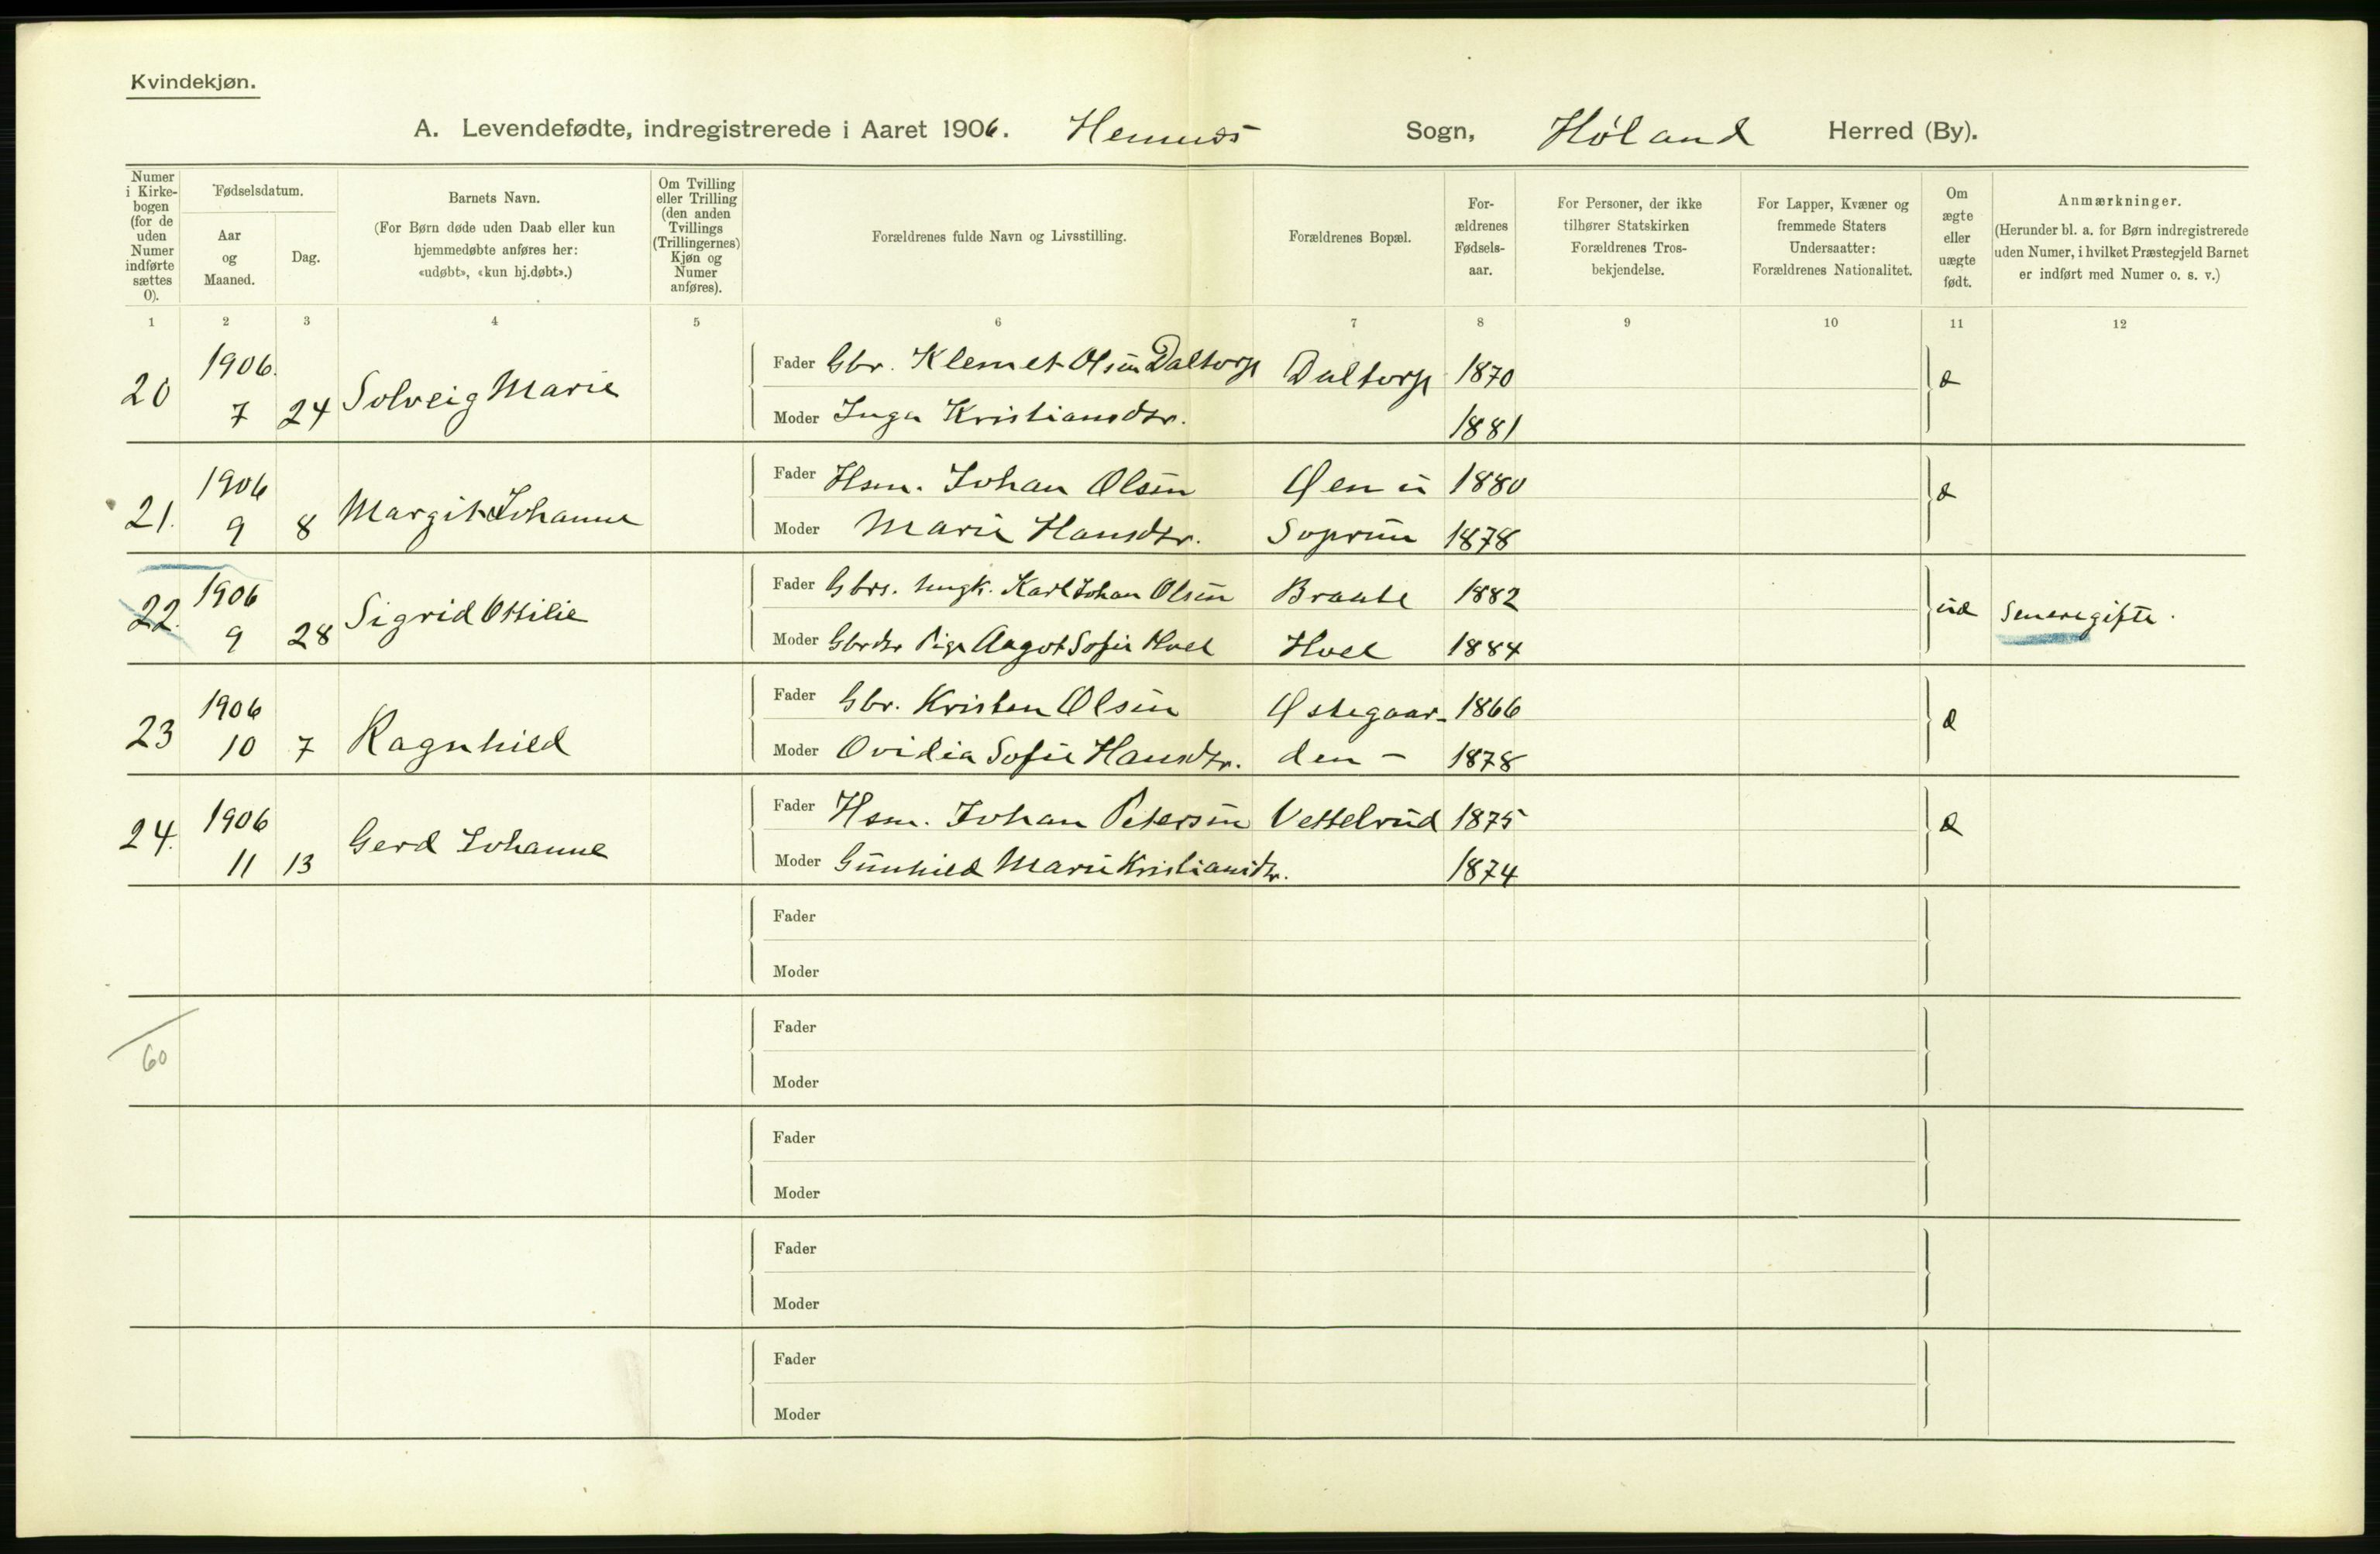 Kvindekjøn.
A. Levendefødte, indregistrerede i Aaret 1906. Hemnes Sogn, Høland Herred (By).
Numer i Kirkebogen (for de uden Numer indførte sættes 0).
Fødselsdatum.
Aar og Maaned.
Dag.
Barnets Navn.
(For Børn døde uden Daab eller kun hjemmedøbte anføres her: «udøbt», «kun hj.døbt».)
Om Tvilling eller Trilling (den anden Tvillings (Trillingernes) Kjøn og Numer anføres).
Forældrenes fulde Navn og Livsstilling.
Forældrenes Bopæl.
Forældrenes Fødselsaar.
For Personer, der ikke tilhører Statskirken Forældrenes Trosbekjendelse.
For Lapper, Kvæner og fremmede Staters Undersaatter: Forældrenes Nationalitet.
Om ægte eller uægte født.
Anmærkninger.
(Herunder bl. a. for Børn indregistrerede uden Numer, i hvilket Præstegjeld Barnet er indført med Numer o. s. v.)
1 2 3 4 5 6 7 8 9 10 11 12
20 1906. 7 24 Solveig Marie
Fader Gbr. Klemet Olsen Daltorp Daltorp 1870 æ
Moder Inga Kristiansdtr. 1881
21. 1906 9 8 Margit Johanne
Fader Hsm. Johan Olsen 1880 æ
Moder Marie Hansdtr. 1878
22. 1906 9 28 Sigrid Ottilie
Fader Gbrs. Ungk. Karl Johan Olsen Braate 1882 uæ Senere gifte.
Moder Gbrdtr Pige Aagot Sofie Hoel Hoel 1884
23 1906 10 7 Ragnhild
Fader Gbr. Kristen Olsen Østegaar- 1866 æ
Moder Ovidia Sofie Hansdtr. den - 1878
24. 1906 11 13 Gerd Johanne
Fader Hsm. Johan Petersen Vettelrud 1875 æ
Moder Gunhild Marie Kristiansdtr. 1874
Fader
Moder
60
Fader
Moder
Fader
Moder
Fader
Moder
Fader
Moder